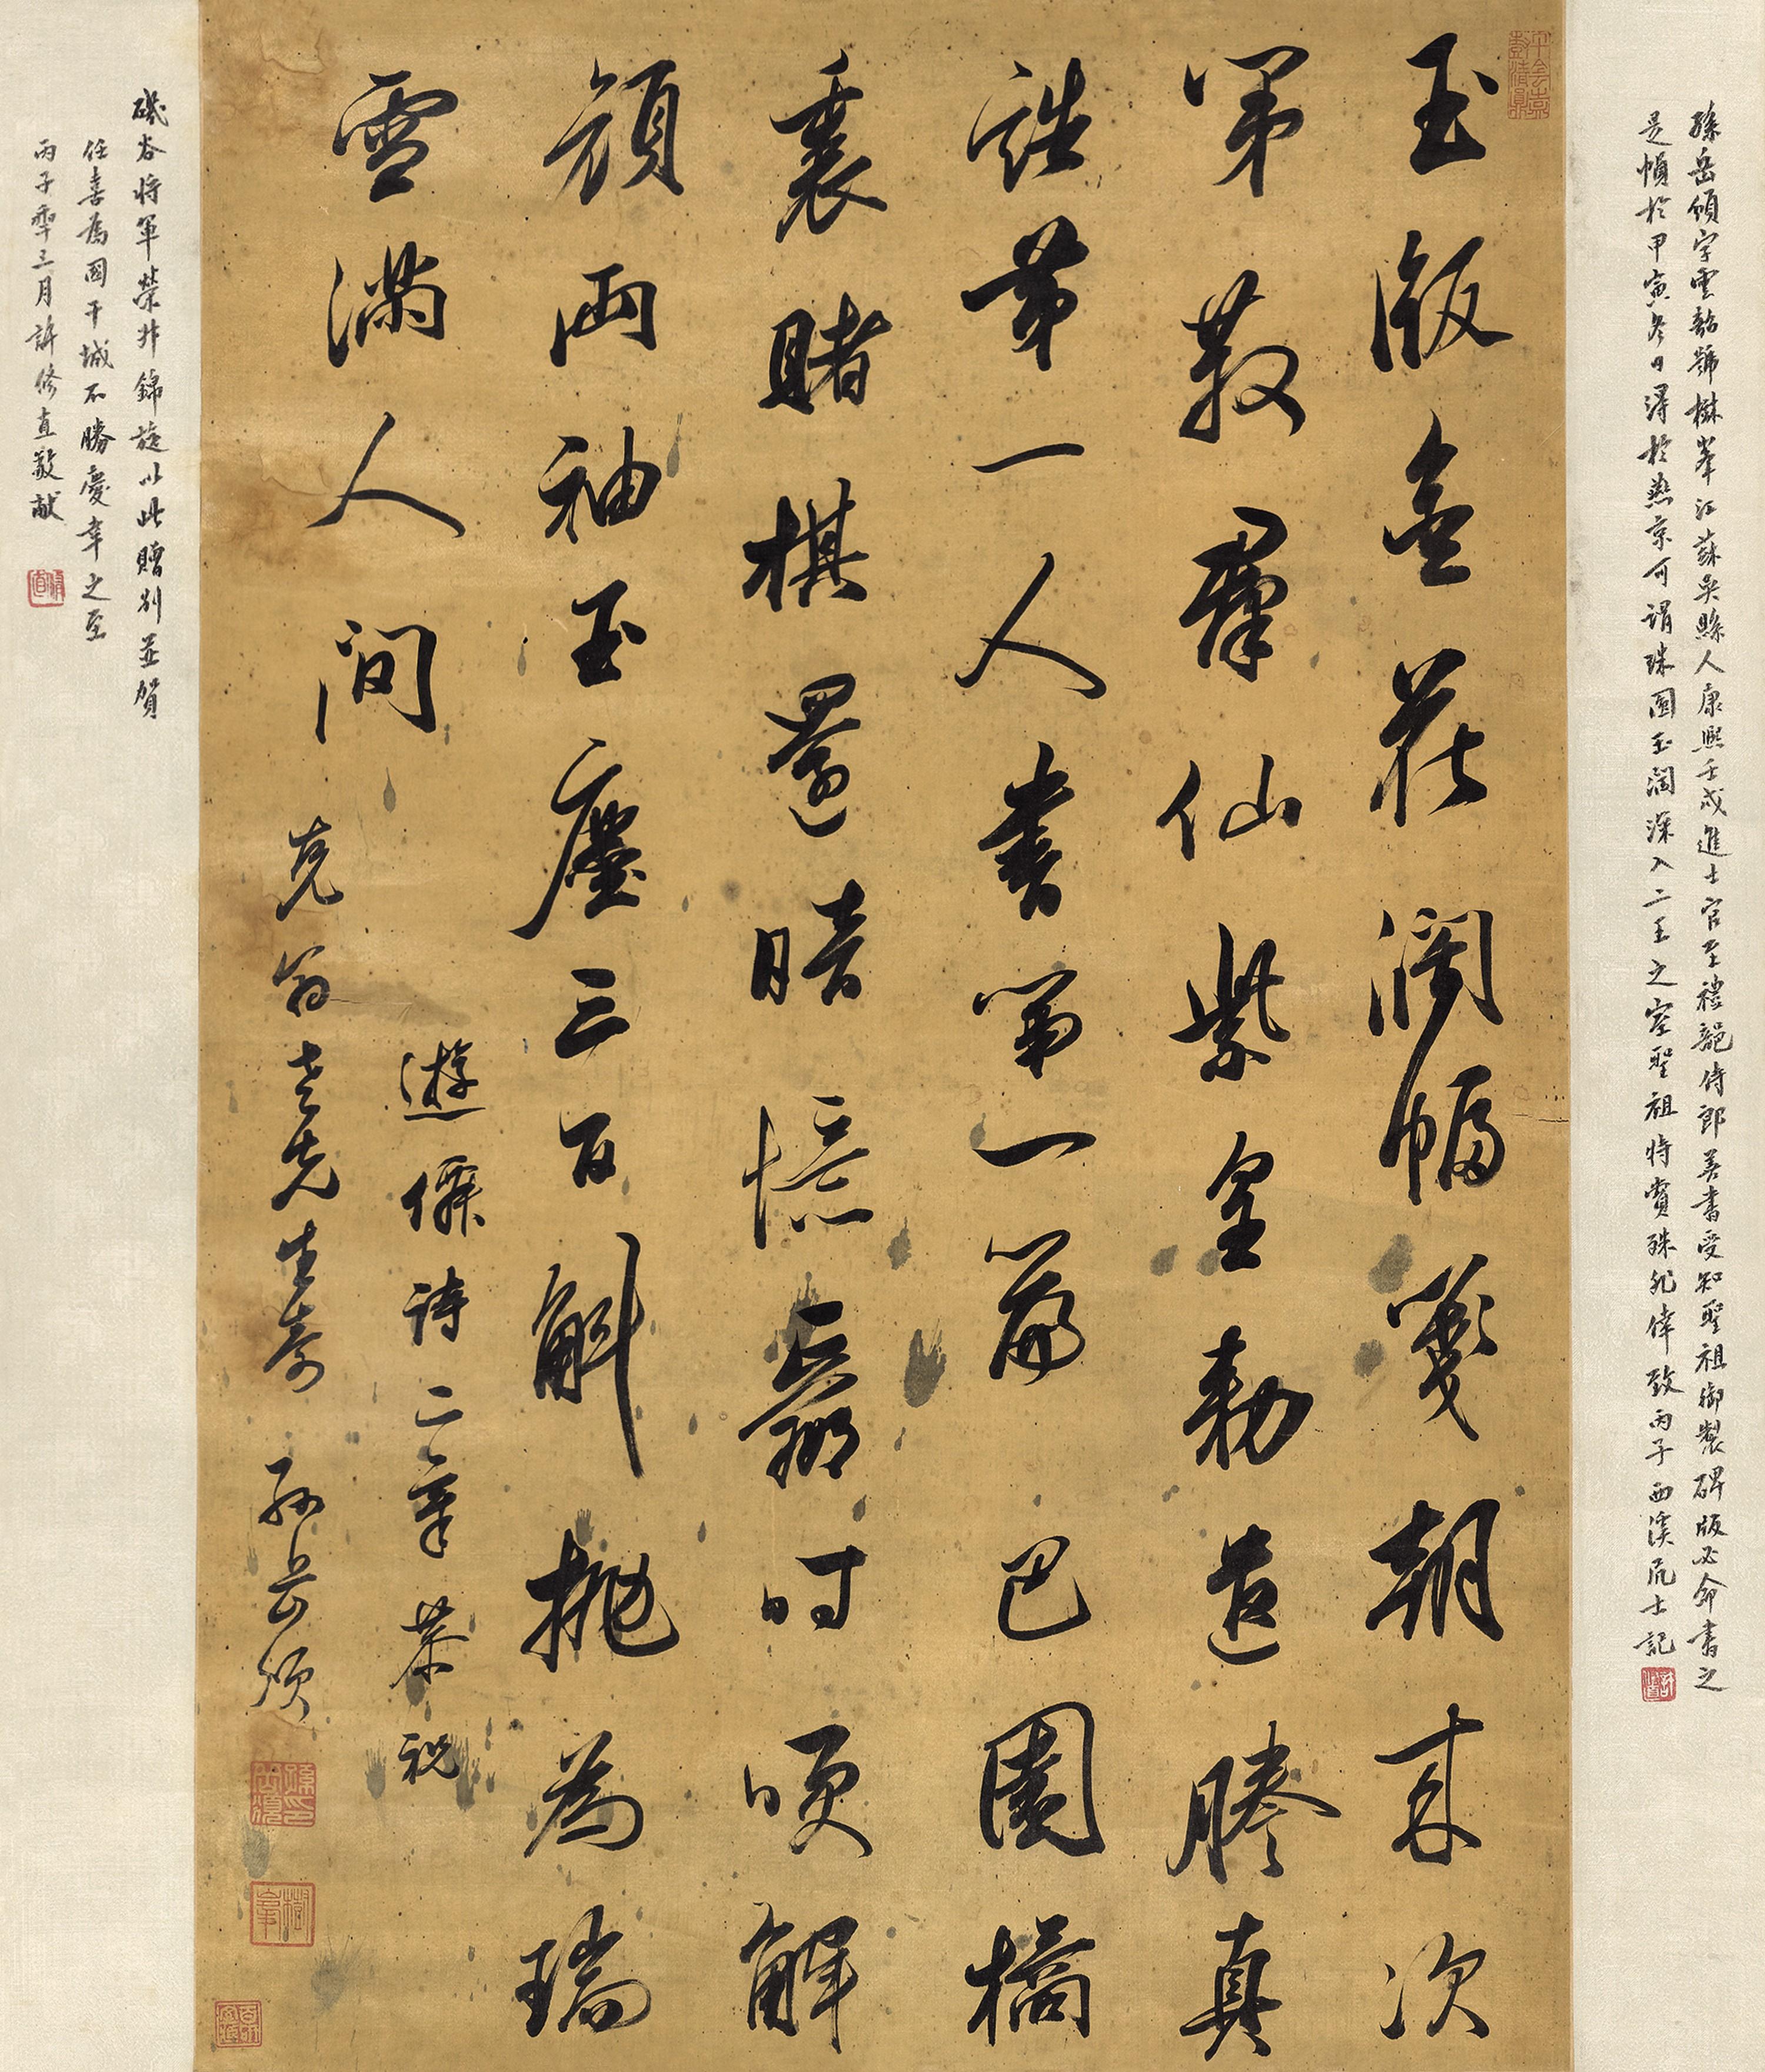 孫岳頒字雲韶號樹峯江蘇吳縣人康熙壬戌進士官至禮部侍郎善書受知聖祖御製碑版必命書之
是幀於甲寅冬日得於燕京可謂珠圓玉潤深入二王之室聖祖特賞殊非倖致丙子西溪居士記
玉版金花闊幅箋朝來次
第散羣仙紫皇勅追謄真
誥第一人書第一篇巴園橘
裏賭棋還暗憶贏時解
顏兩袖玉塵三百斛拋為瑞
雪滿人間
遊僊詩二章恭祝
翁老先生壽 孫岳頒
孫印岳頒
樹峯
磯谷將軍榮升錦旋以此贈別並賀
任喜為國干城不勝慶幸之至
丙子年三月許修直敬献